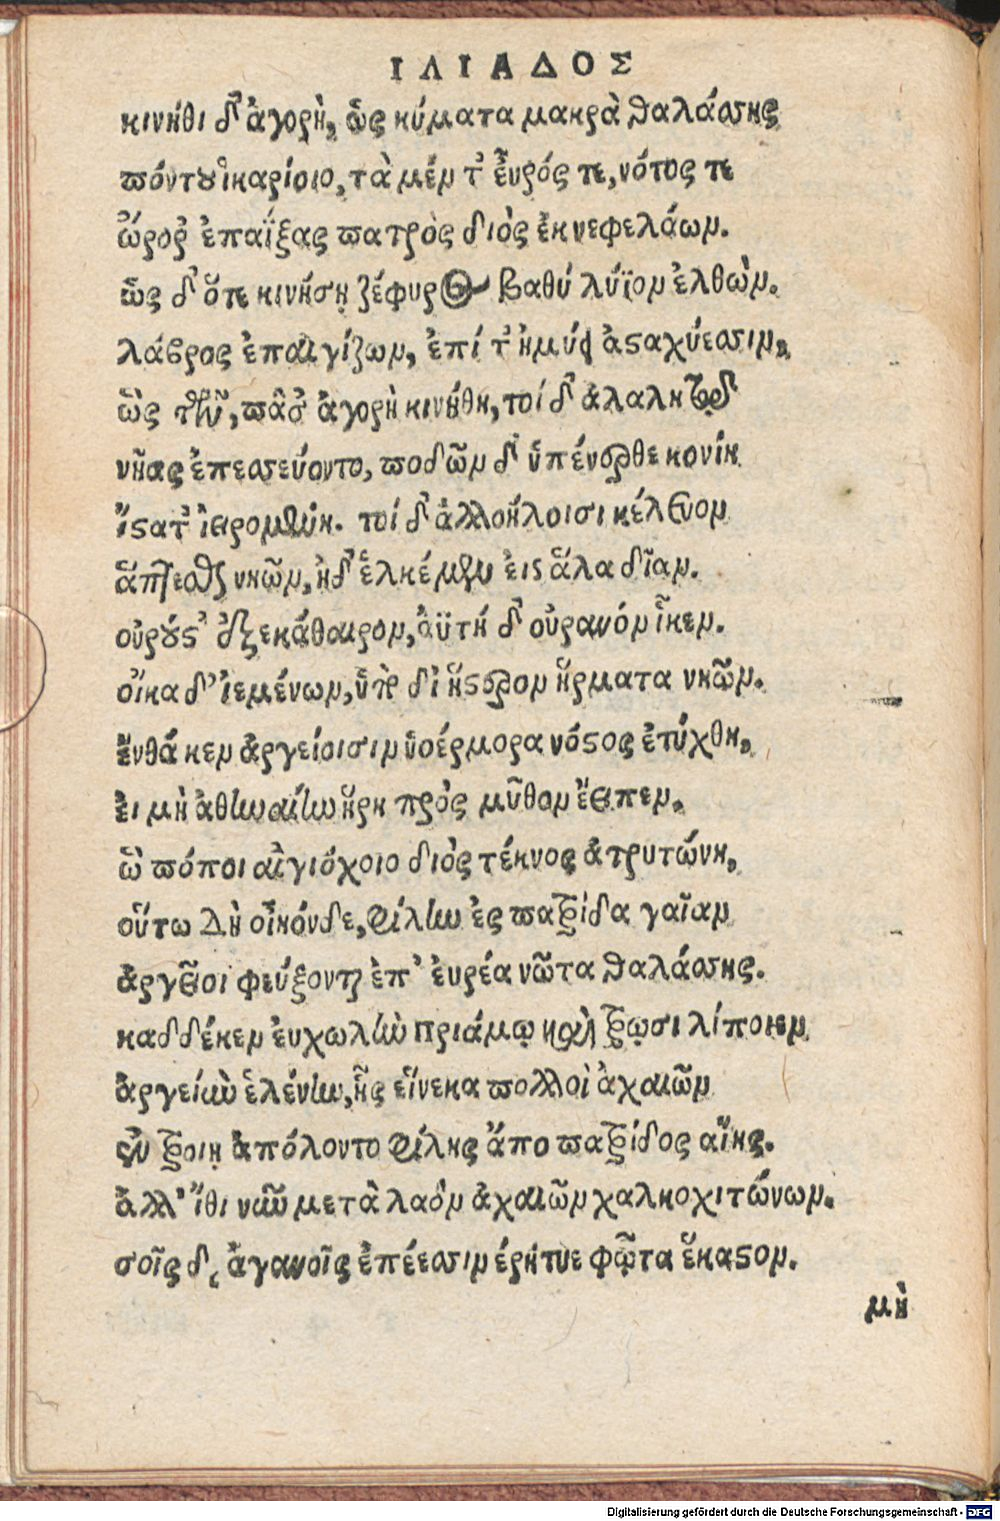 ΙΛΙΑΔΟΣ
κινήθι δ' ἀγορὴ, ὣς κύματα μακρὰ θαλάσσης
πόντου ἰκαρίοιο, τὰ μέν τ' ἔυρός τε, νότος τε
ὤρορ' ἐπαΐξας πατρὸς διὸς ἐκ νεφελάων.
ὣς δ' ὅτε κινήσῃ ζέφυρος βαθύ λήϊον ἐλθὼν.
λάβρος ἐπαιγίζων, ἐπί τ' ἠμύει ἀσταχύεσσιν,
ὣς τῶν, πᾶσ' ἀγορὴ κινήθη, τοί δ' ἀλαλητῷ δ'
νῆας ἐπεσσεύοντο, ποδῶν δ' ὑπένερθε κονίη
ἵστατ' ἀειρομένη. τοί δ' ἀλλήλοισι κέλευον
ἅπτεσθαι νηῶν, ἠδ' ἑλκέμεν εἰς ἅλα δῖαν.
οὐρούς τ' ἐξεκάθαιρον, ἀϋτή δ' οὐρανόν ἷκεν.
οἴκαδ' ἱεμένων, ὑπὸ δ' ἥρεον ἕρματα νηῶν.
ἔνθά κεν ἀργείοισιν ὑπέρμορα νόστος ἐτύχθη,
εἰ μὴ ἀθηναίην ἥρη πρὸς μῦθον ἔειπεν.
ὢ πόποι αἰγιόχοιο διὸς τέκνος ἀτρυτώνη,
οὕτω Δὴ οἶκόνδε, φίλην ἐς πατρίδα γαῖαν
ἀργεῖοι φεύξονται ἐπ' ἐυρέα νῶτα θαλάσσης.
καδδέκεν ἐυχωλὴν πριάμῳ καὶ τρωσὶ λίποιεν
ἀργείην ἑλένην, ἧς εἵνεκα πολλοὶ ἀχαιῶν
ἐν τροίῃ ἀπόλοντο φίλης ἄπο πατρίδος αἴης.
ἀλλ' ἴθι νῦν μετὰ λαὸν ἀχαιῶν χαλκοχιτώνων.
σοῖς δ' ἀγανοῖς ἐπέεσσιν ἐρήτυε φῶτα ἕκαστον.
μὴ
Digitalisierung gefördert durch die Deutsche Forschungsgemeinschaft - DFG